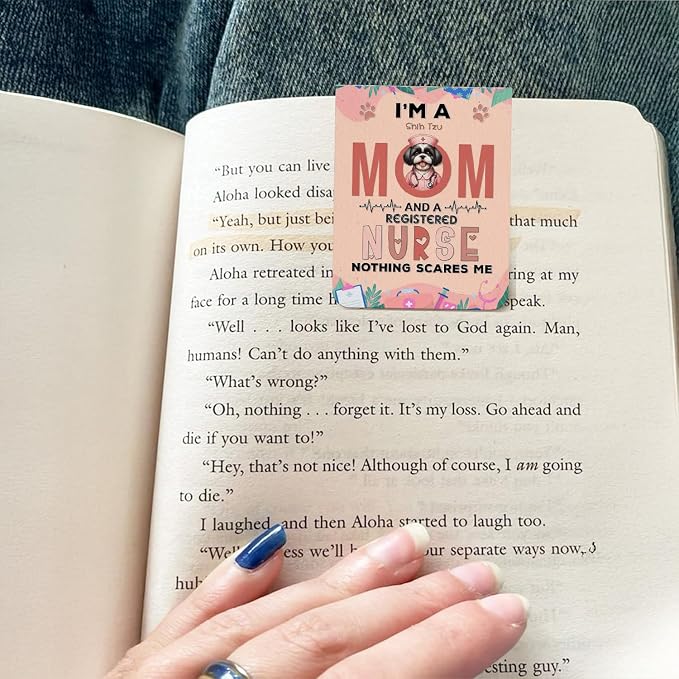 "But you can live
Aloha looked disa
"Yeah, but just bei that much
on its own. How you
Aloha retreated in ring at my
face for a long time h speak.
"Well . . . looks like I've lost to God again. Man,
humans! Can't do anything with them."
"What's wrong?"
"Oh, nothing . . . forget it. It's my loss. Go ahead and
die if you want to!"
"Hey, that's not nice! Although of course, I am going
to die."
I laughed, and then Aloha started to laugh too.
"Well ess we'll our separate ways now,
esting guy."
I'M A
Shih Tzu
MOM
AND A
REGISTERED
NURSE
NOTHING SCARES ME